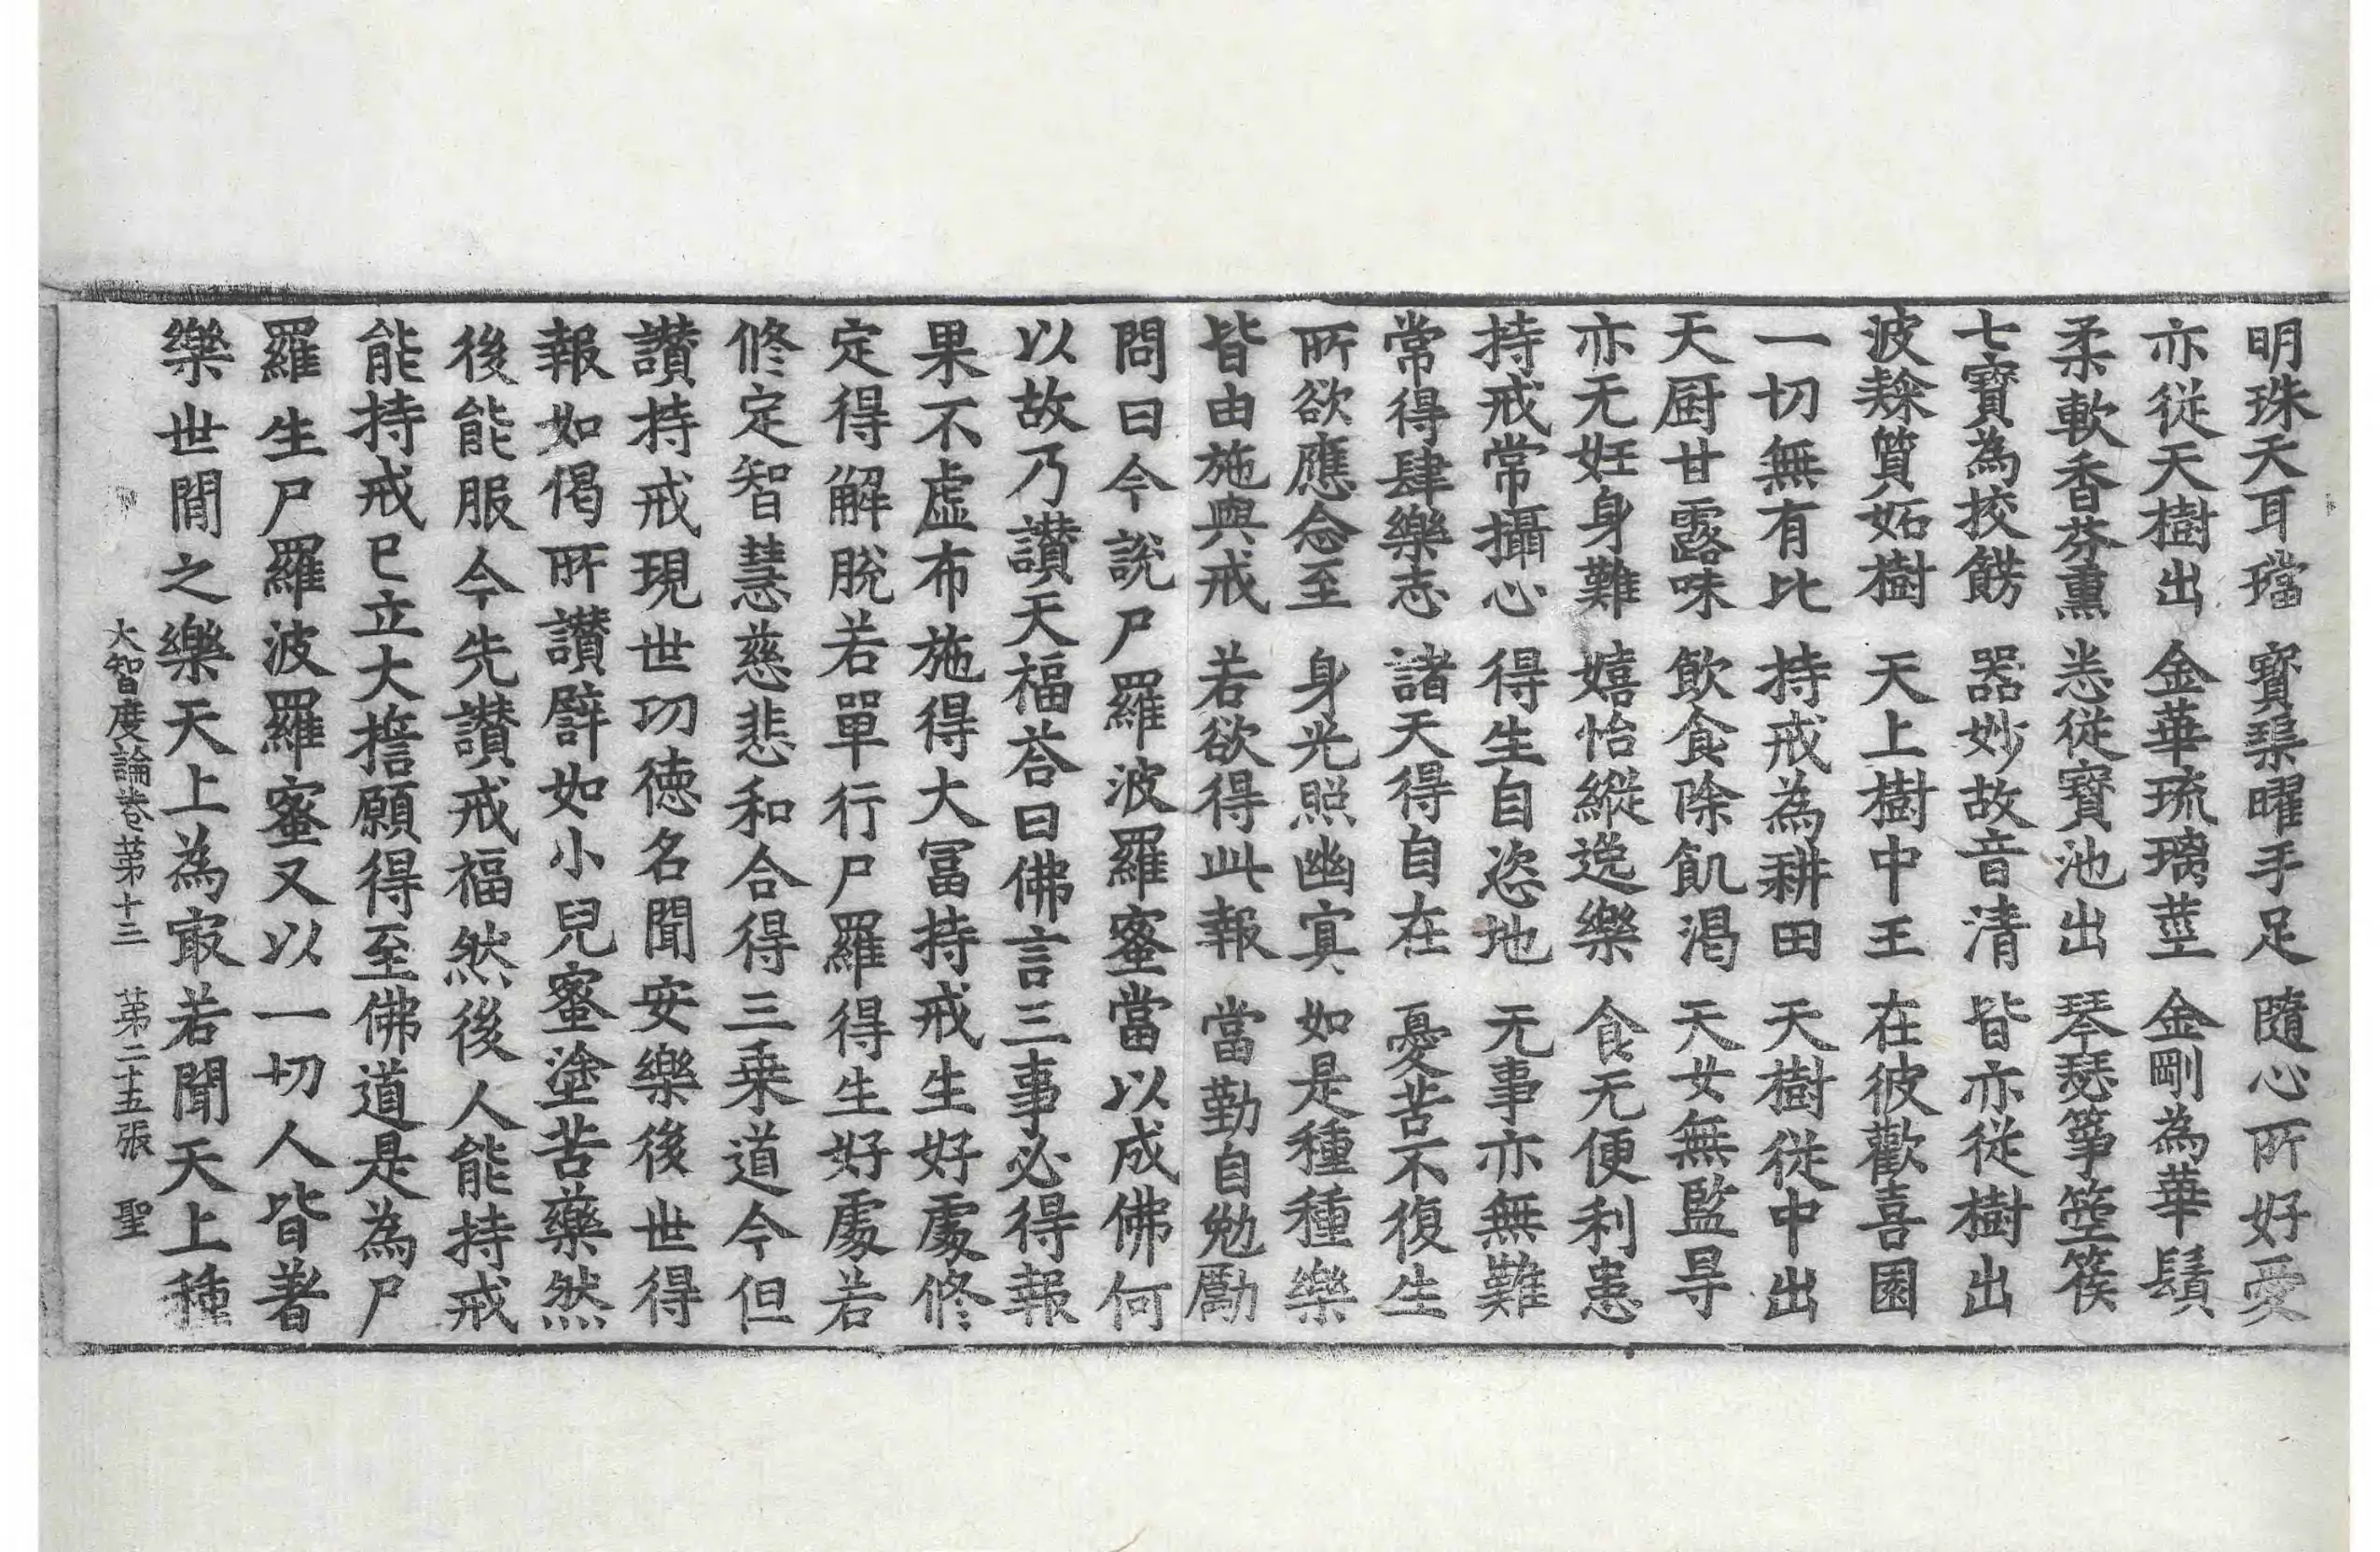 明珠天耳璫　寶璖曜手足　隨心所好愛
亦從天樹出　金華琉璃莖　金剛為華鬚
柔軟香芬熏　悉從寶池出　琴瑟箏箜篌
七寶為挍餝　器妙故音清　皆亦從樹出
波𥟖質妬樹　天上樹中王　在彼歡喜園
一切無有比　持戒為耕田　天樹從中出
天厨甘露味　飲食除飢渴　天女無監㝵
亦无妊身難　嬉怡縱逸樂　食无便利患
持戒常攝心　得生自恣地　无事亦無難
常得肆樂志　諸天得自在　憂苦不復生
所欲應念至　身光照幽㝠　如是種種樂
皆由施與戒　若欲得此報　當勤自勉勵
問曰今說尸羅波羅蜜當以成佛何
以故乃讃天福荅曰佛言三事必得報
果不虛布施得大冨持戒生好處修
定得解脫若單行尸羅得生好處若
修定智慧慈悲和合得三乗道今但
讃持戒現世功徳名聞安樂後世得
報如偈所讃譬如小兒蜜塗苦藥然
後能服今先讃戒福然後人能持戒
能持戒已立大誓願得至佛道是為尸
羅生尸羅波羅蜜又以一切人皆著
樂世閒之樂天上為㝡若聞天上種
大智度論卷第十三　第二十五張　聖